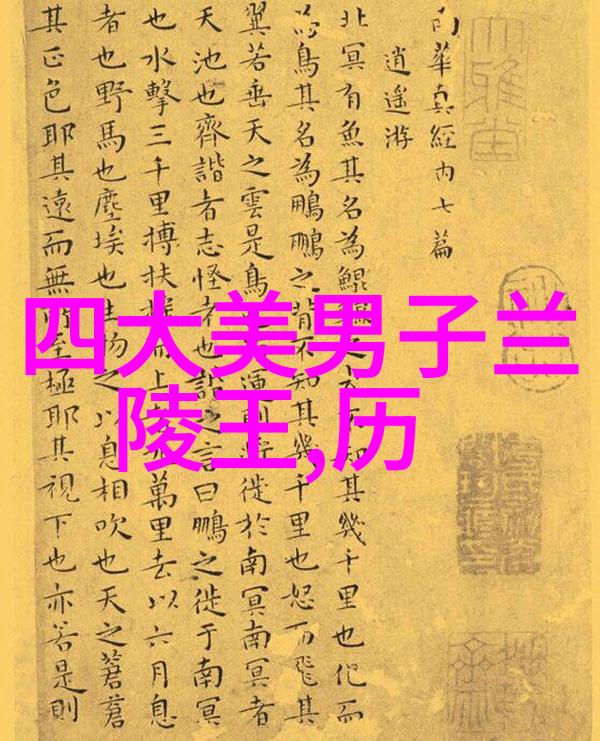 四大美男子兰
陵王,历
南華真經內七篇
逍遙游
北冥有魚其名為鯤之大知其幾千里也化而
為鳥其名為鵬鵬之背不知其幾千里也怒而飛其
翼若垂天之雲是鳥也運則將徙於南冥南冥者
天池也齊諧者志怪者也諧之言曰鵬之徙于南冥
也水擊三千里搏扶搖而上萬里去以六月息
者也野馬也塵埃也生物之以息相吹也天之蒼蒼
其正色耶其遠而無所至極耶其視下也亦若是則